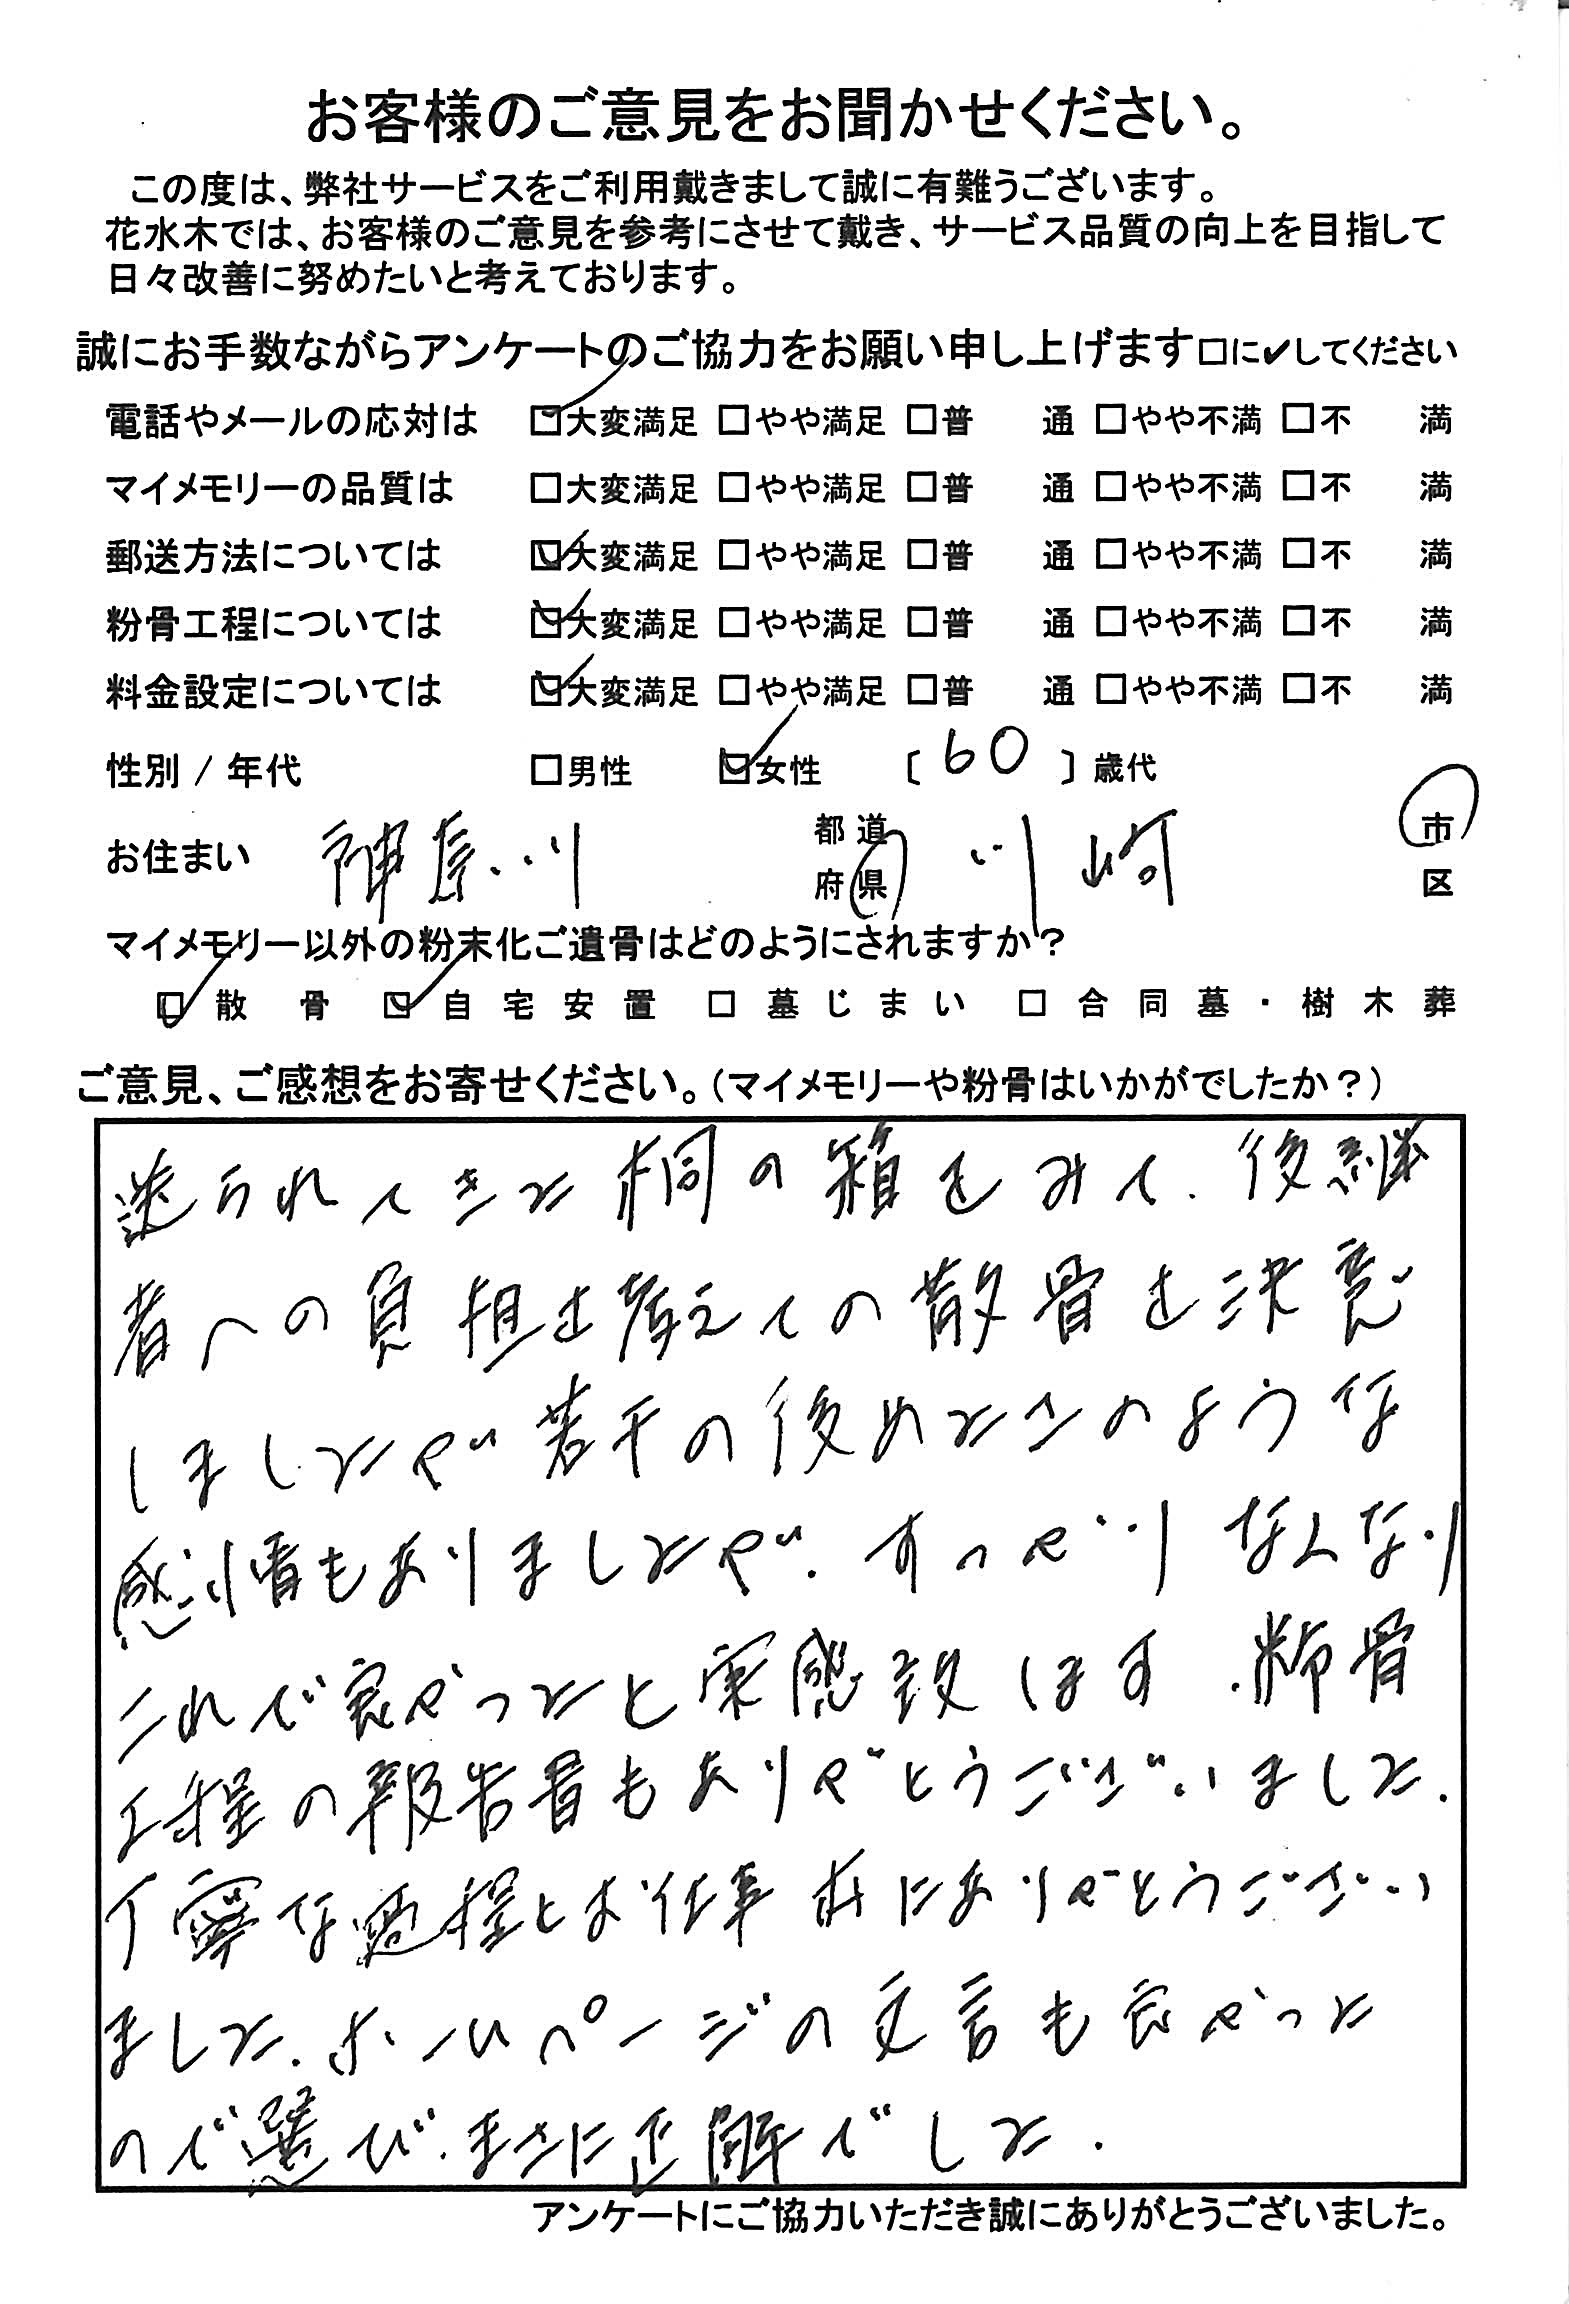 お客様のご意見をお聞かせください。
この度は、弊社サービスをご利用戴きまして誠に有難うございます。
花水木では、お客様のご意見を参考にさせて戴き、サービス品質の向上を目指して
日々改善に努めたいと考えております。
誠にお手数ながらアンケートのご協力をお願い申し上げます□に✔してください
電話やメールの応対は ☑大変満足 □やや満足 □普 通 □やや不満 □不 満
マイメモリーの品質は □大変満足 □やや満足 □普 通 □やや不満 □不 満
郵送方法については ☑大変満足 □やや満足 □普 通 □やや不満 □不 満
粉骨工程については ☑大変満足 □やや満足 □普 通 □やや不満 □不 満
料金設定については ☑大変満足 □やや満足 □普 通 □やや不満 □不 満
性別 / 年代 □男性 ☑女性 〔 60 〕歳代
お住まい 神奈川 都道府県 川崎 市区
マイメモリー以外の粉末化ご遺骨はどのようにされますか?
☑ 散骨 ☑ 自宅安置 □ 墓じまい □ 合同墓・樹木葬
ご意見、ご感想をお寄せください。(マイメモリーや粉骨はいかがでしたか?)
送られてきた桐の箱をみて、後継
者への負担を考えての散骨を決意
しましたが若干の後めたさのような
感情もありましたが、すっかりなんなり
これで良かったと実感致します。粉骨
工程の報告書もありがとうございました。
丁寧な過程とお仕事 本にありがとうござい
ました。ホームページの文言も良かった
ので選び、まさに正解でした。
アンケートにご協力いただき誠にありがとうございました。